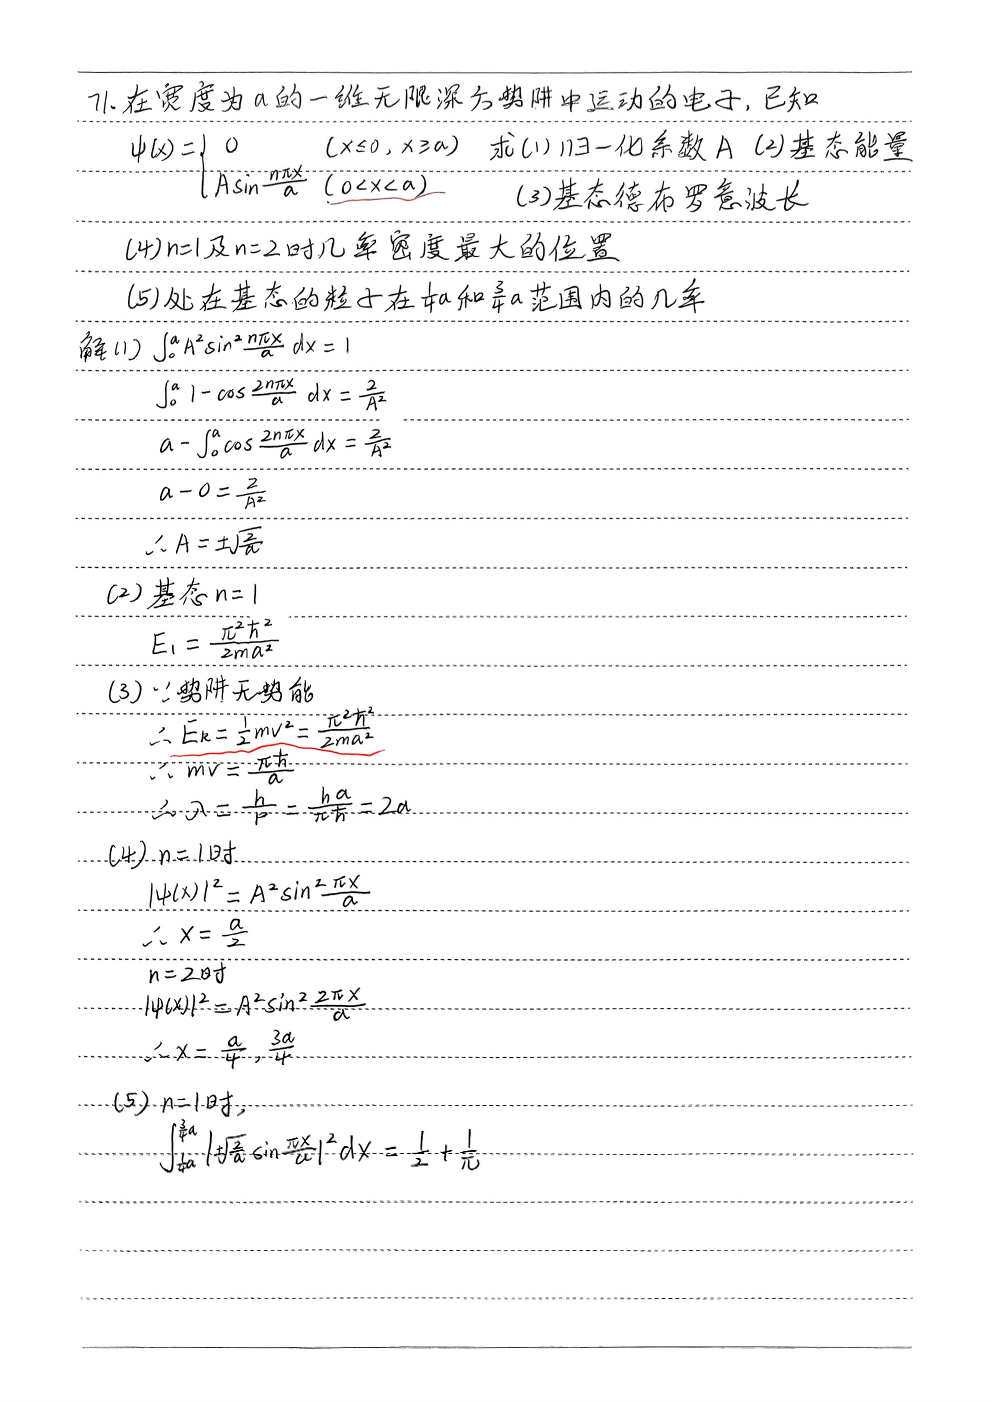 71.在宽度为a的一维无限深方势阱中运动的电子,已知
ψ(x)={0 (x≤0, x≥a) 求(1)归一化系数A (2)基态能量
Asin nπx/a (0<x<a) (3)基态德布罗意波长
(4)n=1及n=2时几率密度最大的位置
(5)处在基态的粒子在1/4a和3/4a范围内的几率
解(1) ∫₀ᵃ A²sin² nπx/a dx=1
∫₀ᵃ 1-cos 2nπx/a dx = 2/A²
a-∫₀ᵃ cos 2nπx/a dx = 2/A²
a-0=2/A²
∴A=±√(2/a)
(2)基态n=1
E₁ = π²ħ²/2ma²
(3)∵势阱无势能
∴Eₖ=1/2mv²=π²ħ²/2ma²
∴mv=πħ/a
∴λ=h/p=ha/πħ=2a
(4) n=1时
|ψ(x)|²=A²sin² πx/a
∴x=a/2
n=2时
|ψ(x)|²=A²sin² 2πx/a
∴x=a/4, 3a/4
(5) n=1时,
∫_{1/4a}^{3/4a} |±√(2/a) sin πx/a|² dx = 1/2+1/π